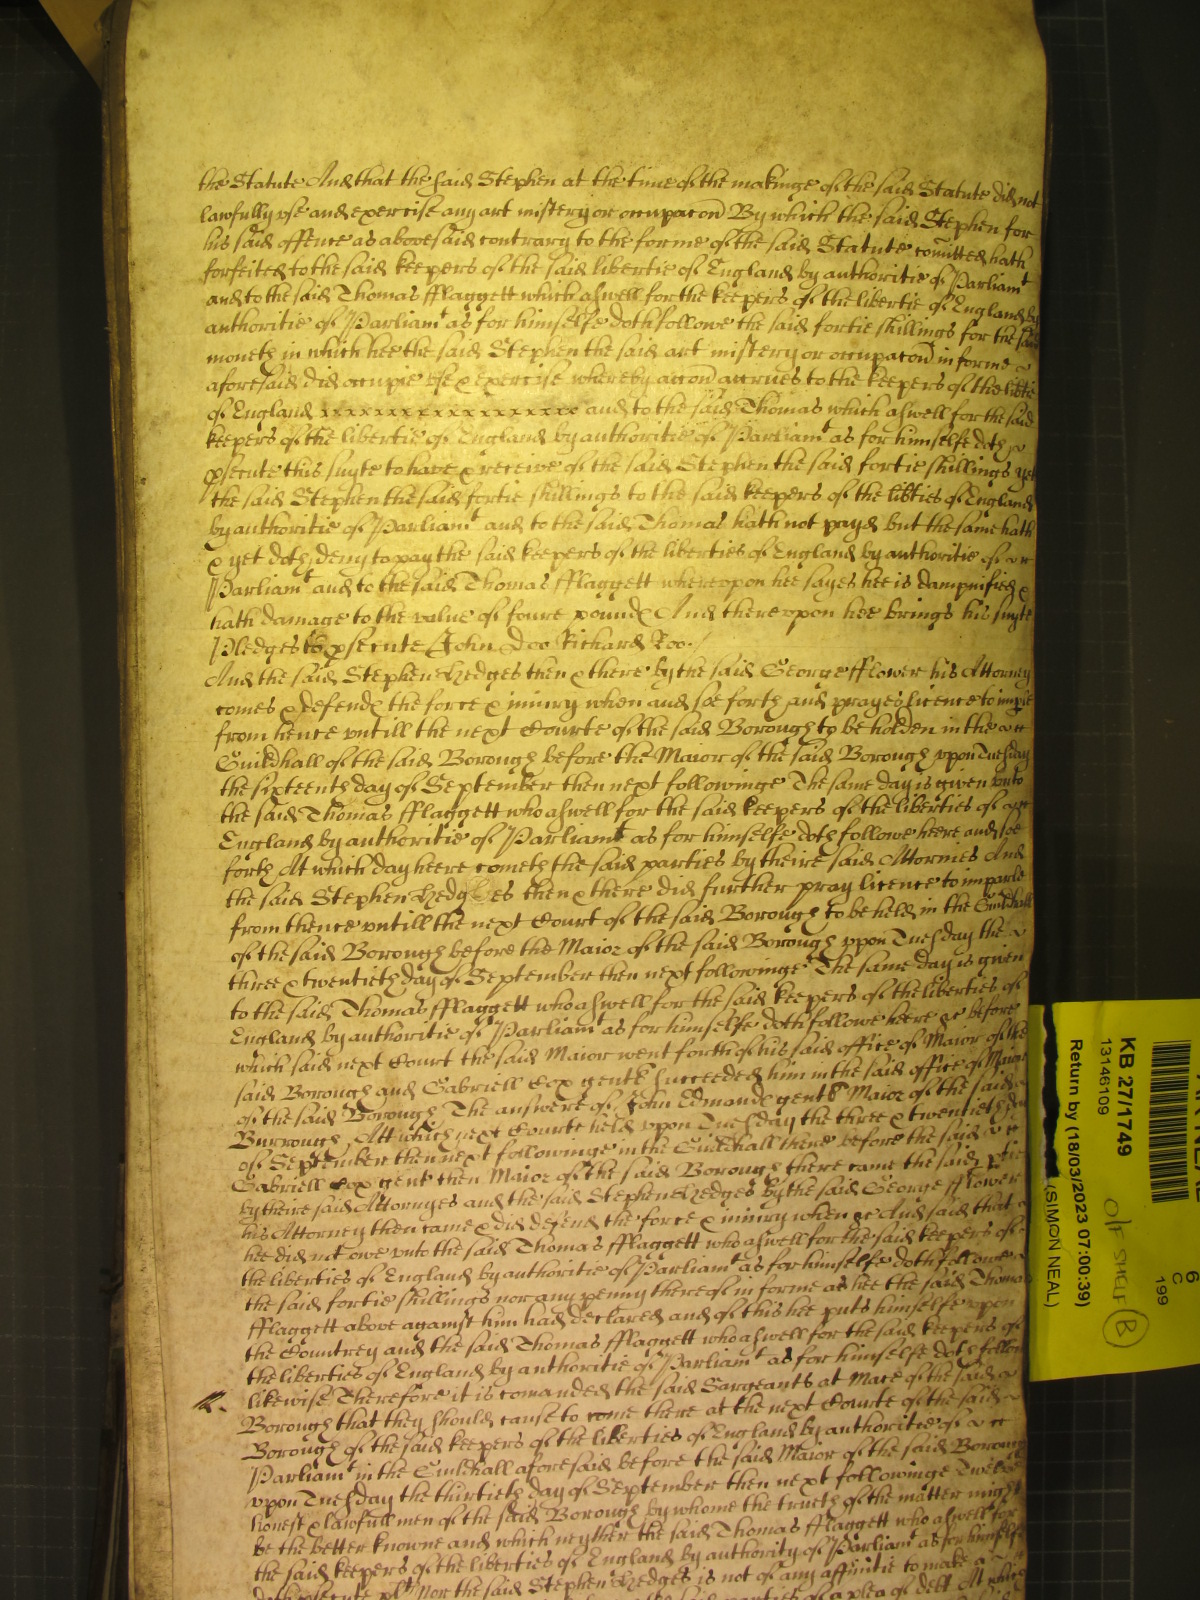 the Statute And that the said Stephen at the time of the makinge of the said Statute did not
lawfully vse and exercise any art mistery or occupacon By which the said Stephen for
his said offence as abovesaid contrary to the forme of the said Statute comitted hath
forfeited to the said keepers of the said libertie of England by authoritie of Parliamt
and to the said Thomas fflaggett which aswell for the keepers of the libertie of England by
authoritie of Parliamt as for himselfe doth followe the said fortie shillings for the said
moneth in which hee the said Stephen the said art mistery or occupacon in forme
aforesaid did occupie vse & exercise whereby accon accrues to the keepers of the libtie
of England xxxxxxxxxxxxxxxxxxxx and to the said Thomas which aswell for the said
keepers of the libertie of England by authoritie of Parliamt as for himselfe doth
psecute this suyte to have & receive of the said Stephen the said fortie shillings yet
the said Stephen the said fortie shillings to the said keepers of the libties of England
by authoritie of Parliamt and to the said Thomas hath not payd but the same hath
& yet doth deny to pay the said keepers of the liberties of England by authoritie of
Parliamt and to the said Thomas fflaggett whereupon hee sayes hee is dampnified &
hath damage to the value of foure pound And thereupon hee brings his suyte
Pledges to psecute John Doo Richard Roo.
And the said Stephen Hedges then & there by the said George fflower his Attorney
comes & defend the force & iniury when and soe forth and prayes licence to imple
from hence vntill the next Courte of the said Borough to be holden in the
Guildhall of the said Borough before the Maior of the said Borough vpon Tuesday
the sixteenth day of September then next followinge The same day is given vnto
the said Thomas fflaggett who aswell for the said keepers of the liberties of
England by authoritie of Parliamt as for himselfe doth followe heere and soe
forth At which day heere cometh the said parties by theire said Attornies And
the said Stephen Hedges then & there did further pray licence to imparle
from thence vntill the next Court of the said Borough to be held in the Guildhall
of the said Borough before the Maior of the said Borough vpon Tuesday the
three & twentieth day of September then next followinge The same day is given
to the said Thomas fflaggett who aswell for the said keepers of the liberties of
England by authoritie of Parliamt as for himselfe doth followe heere &c before
which said next Court the said Maior went forth of his said office of Maior of the
said Borough and Gabriell Cox gent succeeded him in the said office of Maior
of the said Borough The answere of John Edmund gent Maior of the said
Burrough Att which next Courte held vpon Tuesday the three & twentieth day
of September then next followinge in the Guildhall there before the said
Gabriell Cox gent then Maior of the said Borough there came the said pties
by theire said Attornyes and the said Stephen Hedges by the said George fflower
his Attorney then came & did defend the force & iniury when &c And said that
hee did not owe vnto the said Thomas fflaggett who aswell for the said keepers of
the liberties of England by authoritie of Parliamt as for himselfe doth followe
the said fortie shillings nor any penny thereof in forme as hee the said Thomas
fflaggett above against him had declared and of this hee puts himselfe vpon
the Countrey and the said Thomas fflaggett who aswell for the said keepers of
the liberties of England by authoritie of Parliamt as for himselfe doth followe
likewise Therefore it is comanded the said Sargeants at Mace of the said
Borough that they should cause to come there at the next Courte of the said
Borough of the said keepers of the liberties of England by authoritie of
Parliamt in the Guildhall aforesaid before the said Maior of the said Borough
vpon Tuesday the thirtieth day of September then next followinge Twelve
honest & lawfull men of the said Borough by whome the trueth of the matter might
be the better knowne and which neyther the said Thomas fflaggett who aswell for
the said keepers of the liberties of England by authority of Parliamt as for himselfe
doth psecute nor the said Stephen Hedges is not of any affinitie to make a
of a plea of debt At which
KB 27/1749
13146109
Return by (18/03/2023 07:00:39)
(SIMON NEAL)
O/F SHELF B
6
C
199